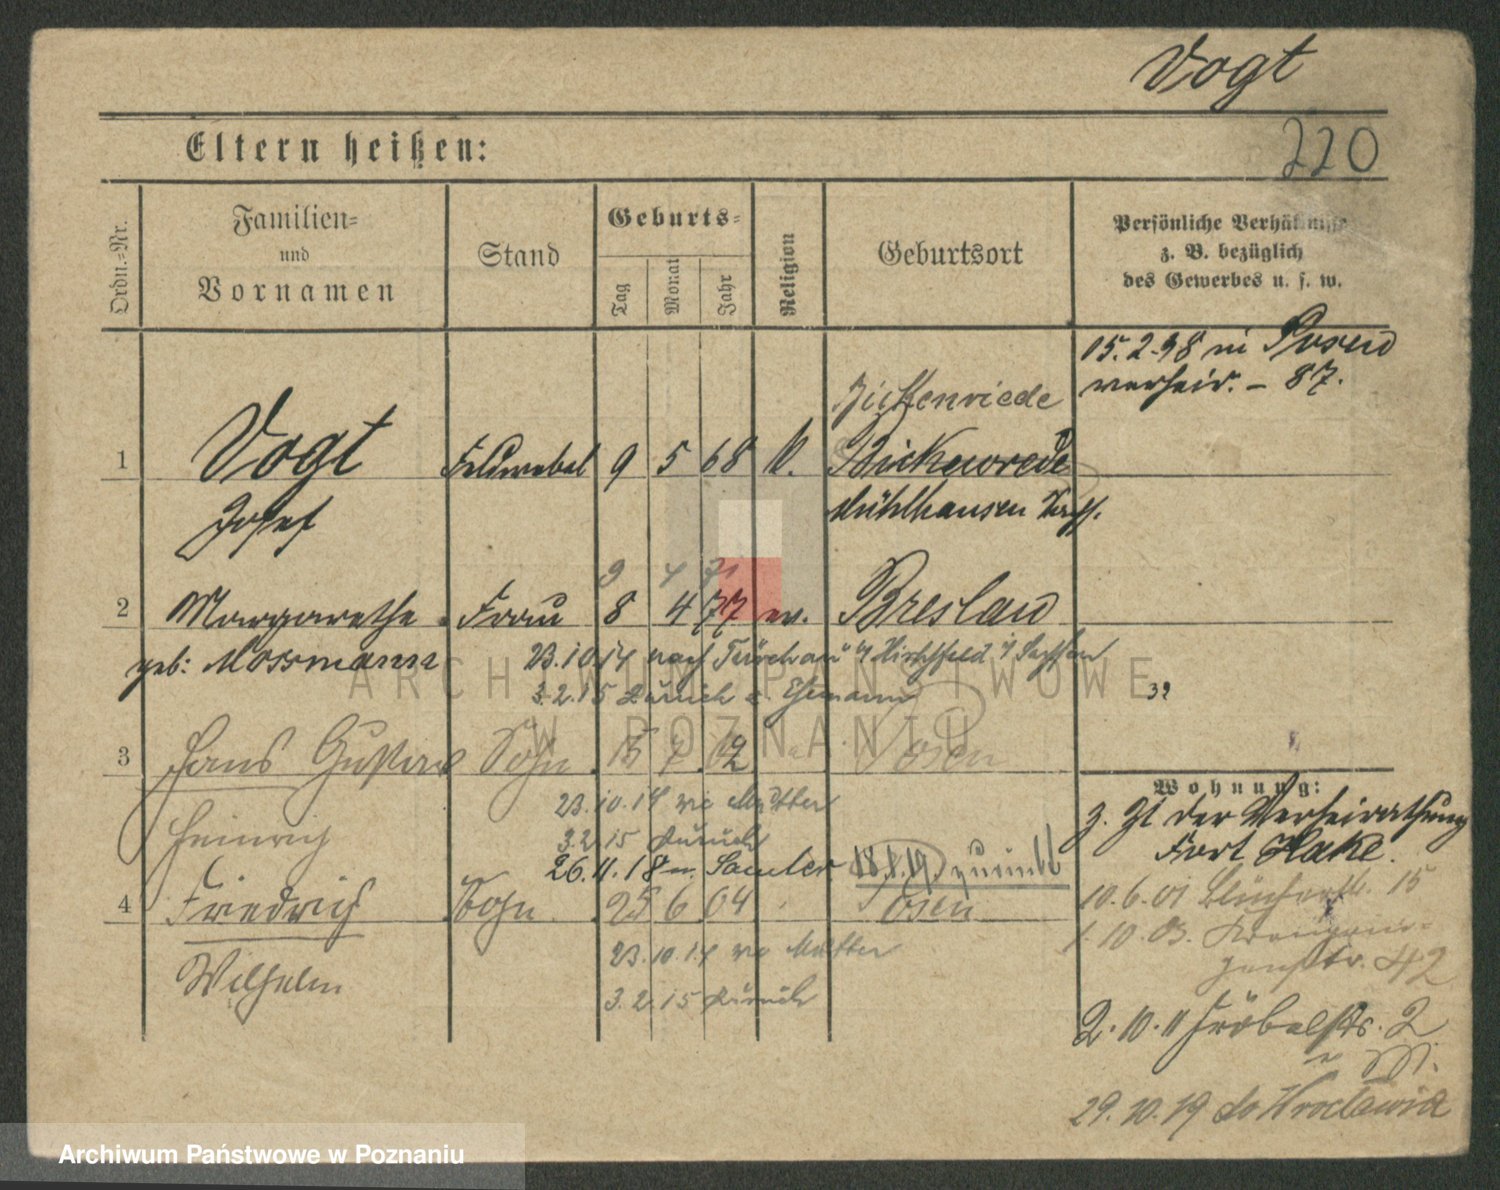 Vogt
220
Eltern heißen:
Ordn.=Nr.
Familien=
und
Vornamen
Stand
Geburts=
Tag
Monat
Jahr
Religion
Geburtsort
Persönliche Verhältnisse
z. B. bezüglich
des Gewerbes u. s. w.
15.2.98 in Posen
verheir. – 87.
Bickenriede
1 Vogt Feldwebel 9 5 68 k. Bickenrede
Josef Mühlhausen
9 4 71
2 Margarethe Frau 8 4 77 ev. Breslau
geb: Mossmann 23.10.14 nach
3.2.15 zurück z. Ehemann
32
3 Hans Gustav Sohn 15 7 02 Posen
Heinrich 23.10.14 wie Mutter
3.2.15 zurück
26.11.18 n. Samter 18.1.19. zurück
4 Friedrich Sohn 25 6 04 Posen
Wilhelm 23.10.14 wie Mutter
3.2.15 zurück
Wohnung:
z. Zt der Verheirathung
Fort Hake.
10.6.01 Blücherstr. 15
1.10.03. 42
2.10.11 Fröbelstr. 2
29.10.19 do Wrocławia
ARCHIWUM PAŃSTWOWE
W POZNANIU
Archiwum Państwowe w Poznaniu